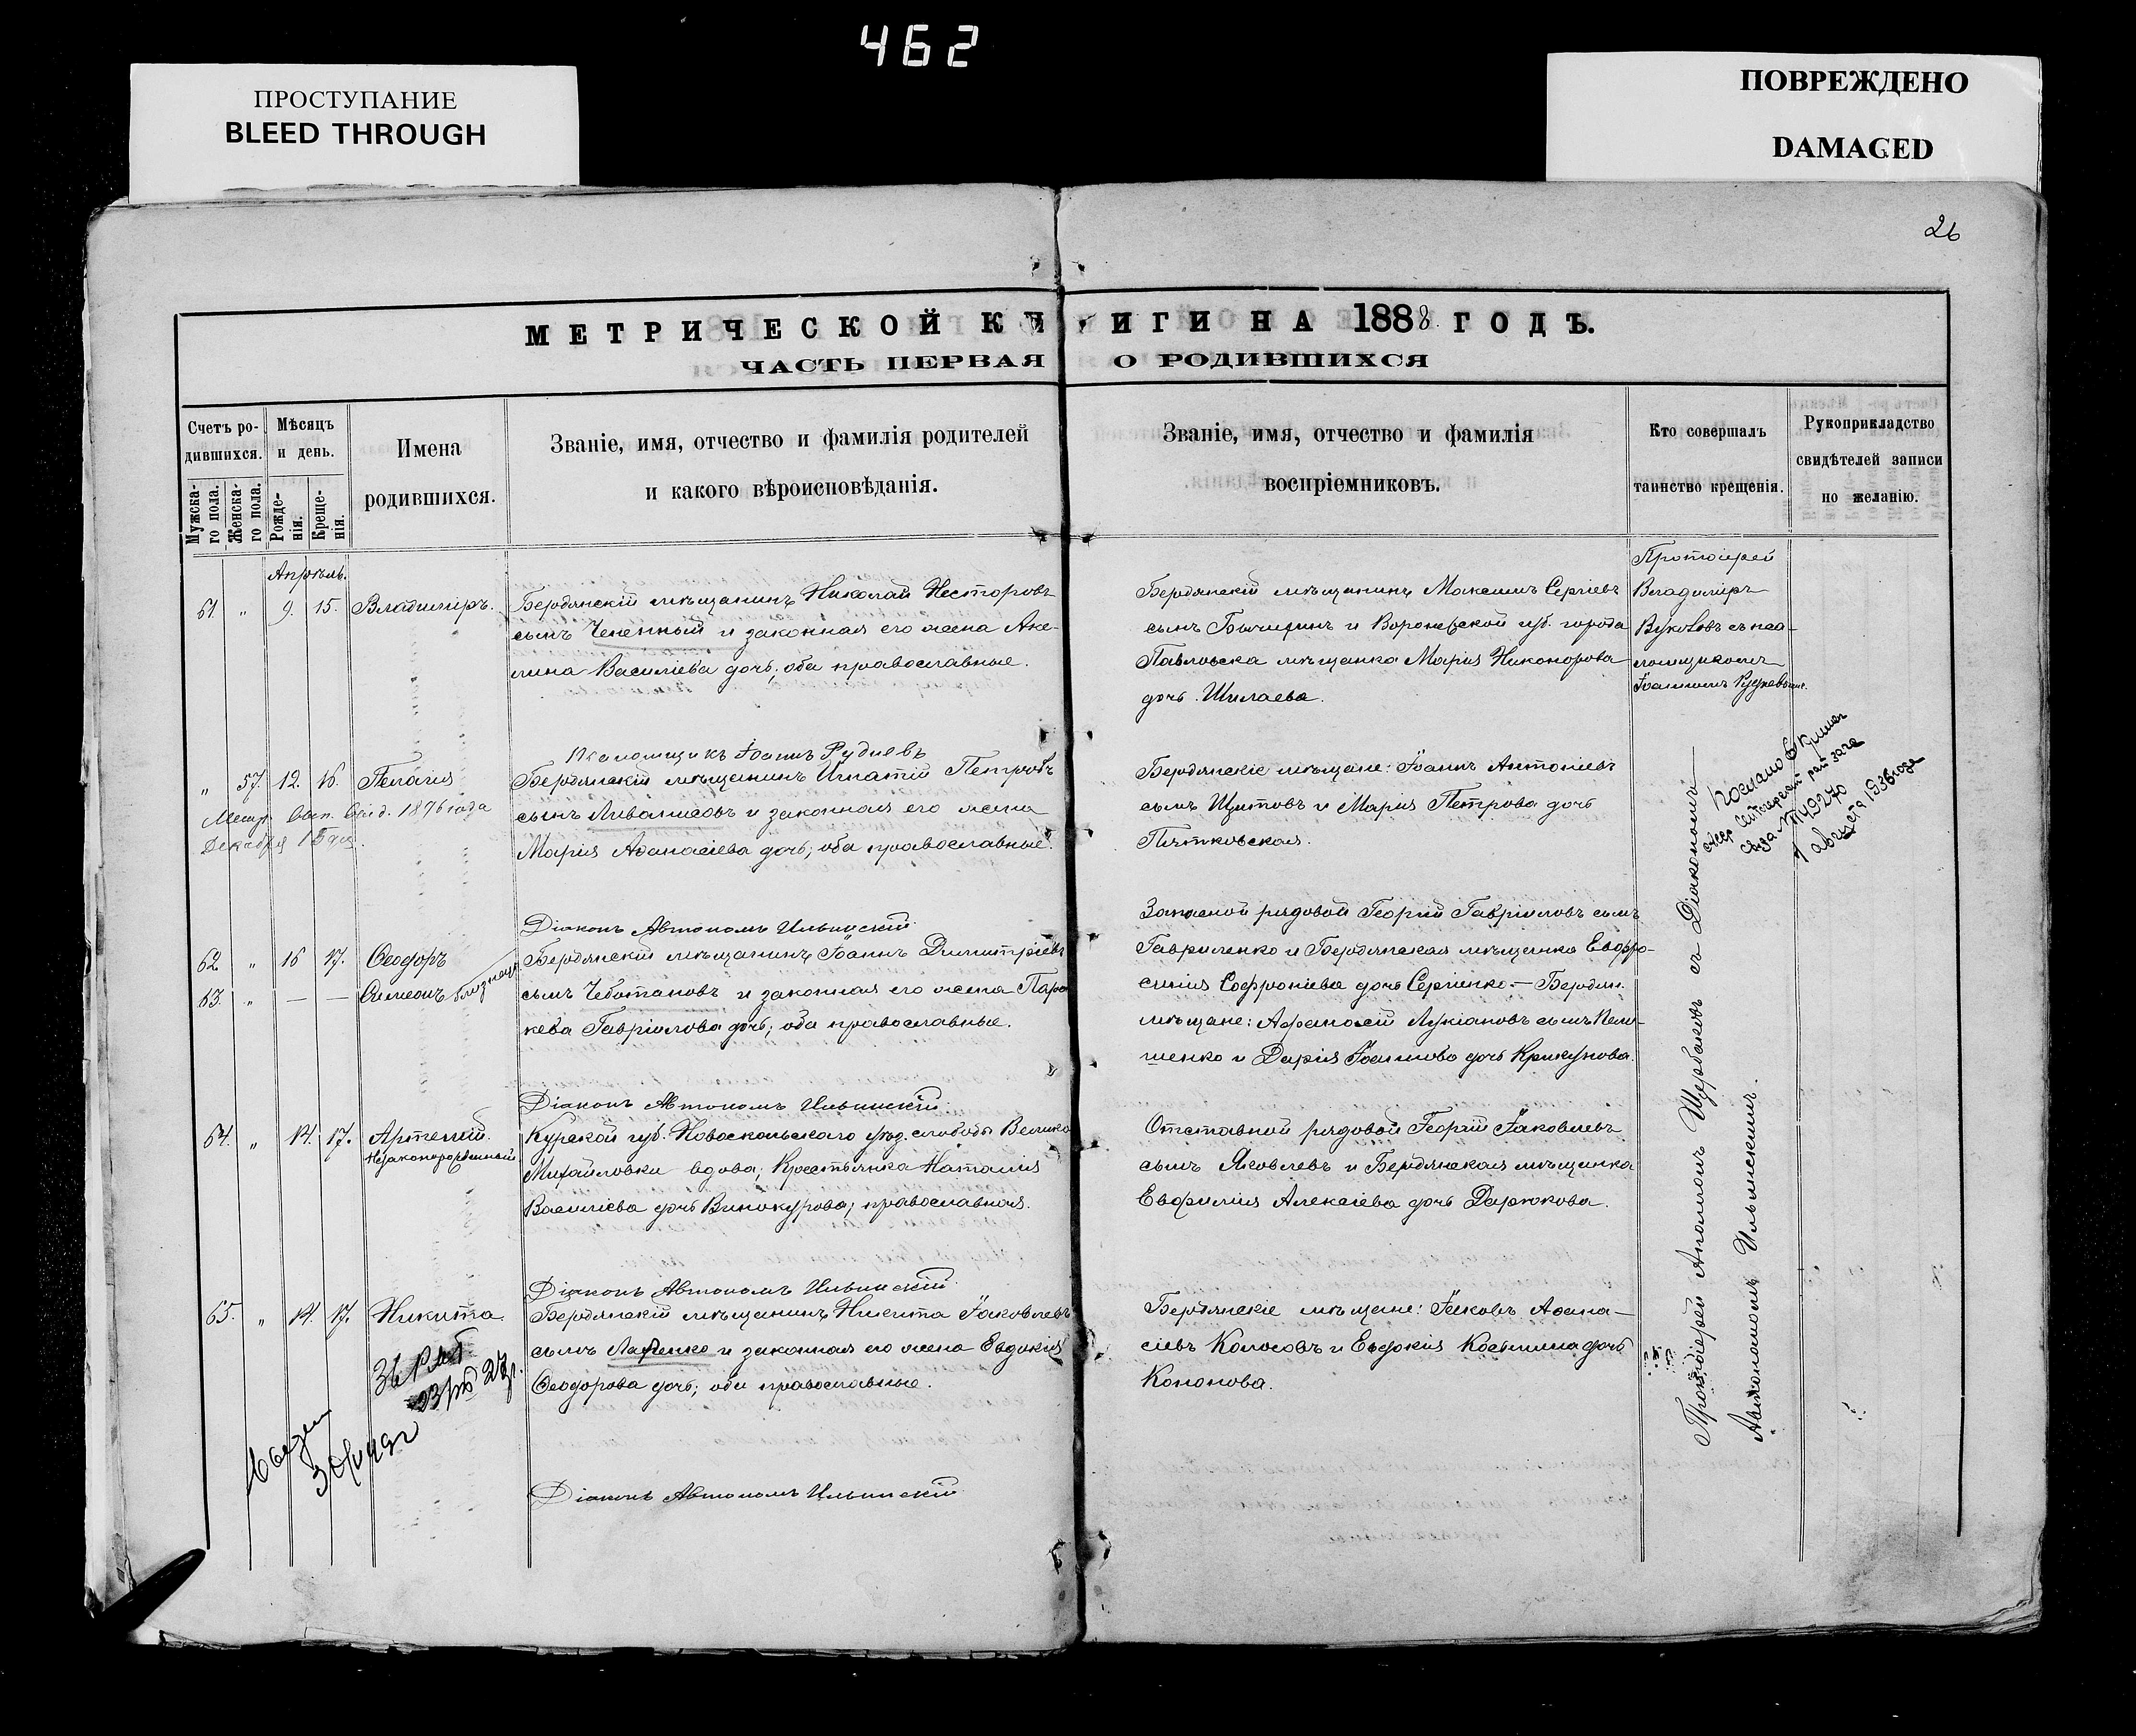 462
ПРОСТУПАНИЕ
BLEED THROUGH
ПОВРЕЖДЕНО
DAMAGED
26
МЕТРИЧЕСКОЙ КНИГИ НА 1888 ГОДЪ.
ЧАСТЬ ПЕРВАЯ О РОДИВШИХСЯ
Счетъ ро-
дившихся.
Мужска-
го пола.
Женска-
го пола.
Мѣсяцъ
и день.
Рожде-
нія.
Креще-
нія.
Имена
родившихся.
Званіе, имя, отчество и фамилія родителей
и какого вѣроисповѣданія.
Званіе, имя, отчество и фамилія
воспріемниковъ.
Кто совершалъ
таинство крещенія.
Рукоприкладство
свидѣтелей записи
по желанію.
Апрѣль.
61. " 9. 15. Владиміръ.
Бердянскій мѣщанинъ Николай Несторовъ
сынъ и законная его жена Аке-
лина Василіева дочь; оба православные.
Бердянскій мѣщанинъ Максимъ Сергіевъ
сынъ и Воронежской губ. города
Павловска мѣщанка Марія Никонорова
дочь Шилаева.
Протоіерей
Владиміръ
съ пса-
ломщикомъ
Іоанномъ
Псаломщикъ Іоаннъ Рудневъ
" 57. 12. 16. Пелагія
Декабря
Бердянскій мѣщанинъ Игнатій Петровъ
сынъ и законная его жена
Марія Аѳанасіева дочь; оба православные.
Бердянскіе мѣщане: Іоаннъ Антоніевъ
сынъ Щитовъ и Марія Петрова дочь
Пятковская.
1936 года
Діаконъ Автономъ Ильинскій
62 " 16 17. Ѳеодоръ
63. " — — Симеонъ близнецы
Бердянскій мѣщанинъ Іоаннъ Димитріевъ
сынъ Чеботановъ и законная его жена Парас
кева Гавріилова дочь; оба православные.
Запасной рядовой Георгій Гавріиловъ сынъ
Гавриленко и Бердянская мѣщанка Евфро-
синія Софроніева дочь Сергіенко — Бердян.
мѣщане: Афанасій Лукіановъ сынъ
и Дарія Іоаннова дочь Крикунова.
Протоіерей Аполлонъ Щербаковъ съ Діакономъ
Автономомъ Ильинскимъ.
Діаконъ Автономъ Ильинскій
64. " 14. 17. Артемій.
Незаконорожденный
Курской губ. Новооскольскаго уѣзд. слободы Велико
Михайловки вдова, Крестьянка Наталія
Василіева дочь Винокурова; православная.
Отставной рядовой Георгій Іаковлевъ
сынъ Яковлевъ и Бердянская мѣщанка
Евфимія Алексіева дочь Дарюкова.
Діаконъ Автономъ Ильинскій
65. " 14. 17. Никита
Бердянскій мѣщанинъ Никита Іаковлевъ
сынъ и законная его жена Евдокія
Ѳеодорова дочь; оба православные.
Бердянскіе мѣщане: Іаковъ Аѳана-
сіевъ Колосовъ и Евдокія Косьмина дочь
Кононова.
Діаконъ Автономъ Ильинскій